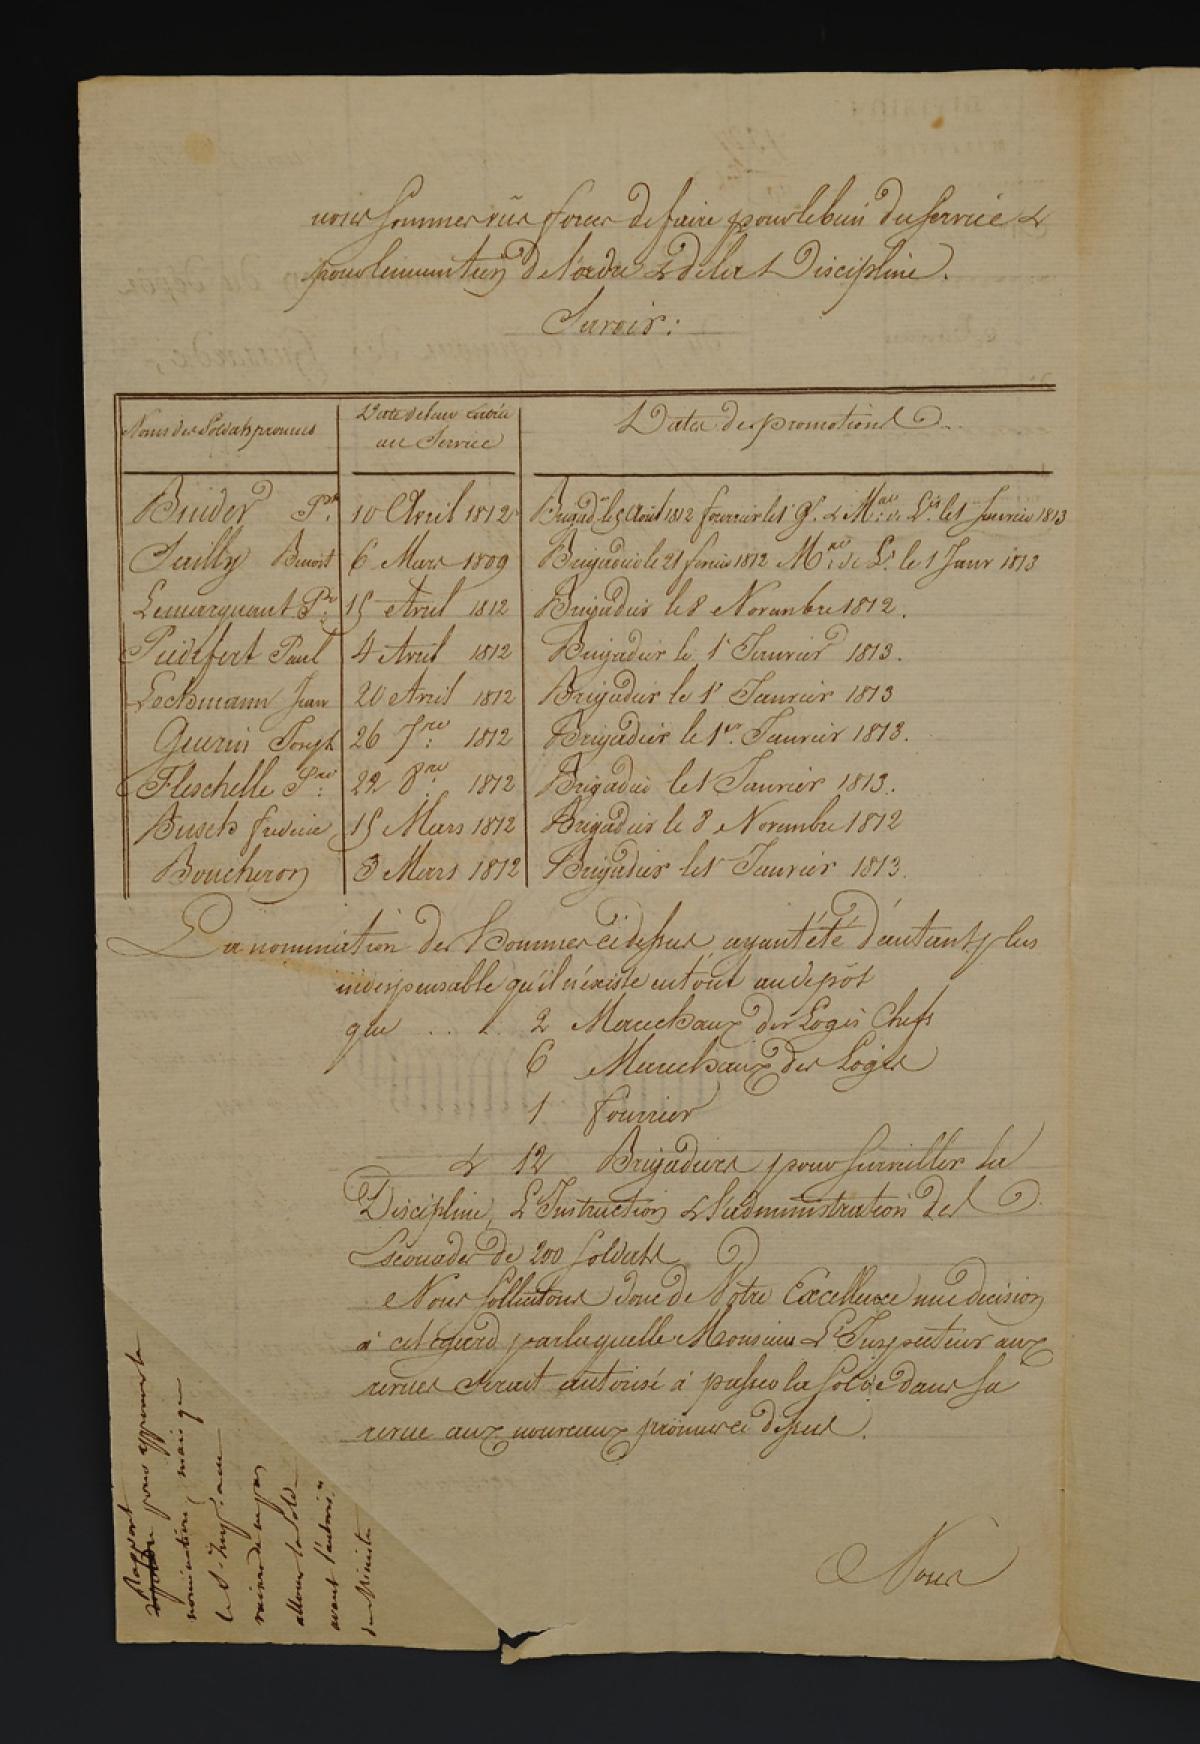 nous sommes vus forcés de faire pour le bien du service &
pour le maintien de l'ordre & de la Discipline.
Savoir:
Noms des Soldats promus | Date de leur Entrée au Service | Dates des promotions
Bruder Pre. | 10 Avril 1812 | Brigadr. le 5 Aout 1812 fourrier le 1 9r. & Mal. de Ls. le 1 Janvier 1813
Sailly Benoit | 6 Mars 1809 | Brigadier le 21 fevrier 1812 Mal. de Ls. le 1 Janv 1813
Lemarquant Pre. | 15 Avril 1812 | Brigadier le 8 Novembre 1812.
Piedefert Paul | 4 Avril 1812 | Brigadier le 1r Janvier 1813.
Lechmann Jean | 20 Avril 1812 | Brigadier le 1r Janvier 1813
Guerin Joseph | 26 7re. 1812 | Brigadier le 1er. Janvier 1813.
Fleschelle | 22 8re. 1812 | Brigadier le 1 Janvier 1813.
Busch frederic | 15 Mars 1812 | Brigadier le 8 Novembre 1812
Boucheron | 3 Mars 1812 | Brigadier le 1r Janvier 1813.
La nomination des hommes ci dessus ayant été d'autant plus
indispensable qu'il n'existe en tout au dépôt
que . . . . 2 Marechaux des Logis Chefs
6 Marechaux des Logis
1 fourrier
& 12 Brigadiers pour surveiller la
Discipline, L'Instruction & l'administration des
Escouades de 200 soldats.
Nous sollicitons donc de Votre Excellence une decision
à cet égard par laquelle Monsieur L'Inspecteur aux
revues serait autorisé à passer la solde dans sa
revue aux nouveaux promus ci dessus.
Nous
Rapport
pour approuver la
nomination, mais que
le Sr. Insp. aux
revues ne
allouer la solde
avant l'autorison
du Ministre